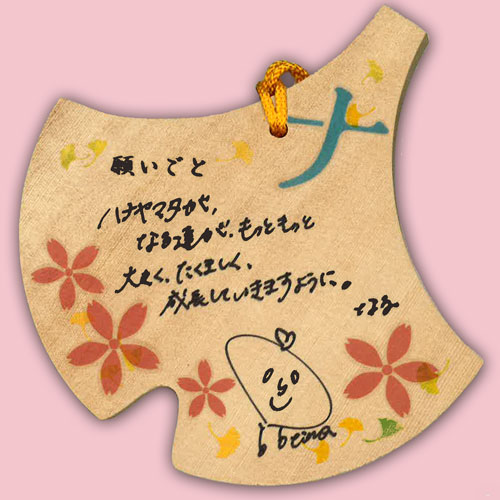 ナ
願いごと
ハナヤマタが、
なる達が、もっともっと
大きく、たくましく、
成長していきますように。